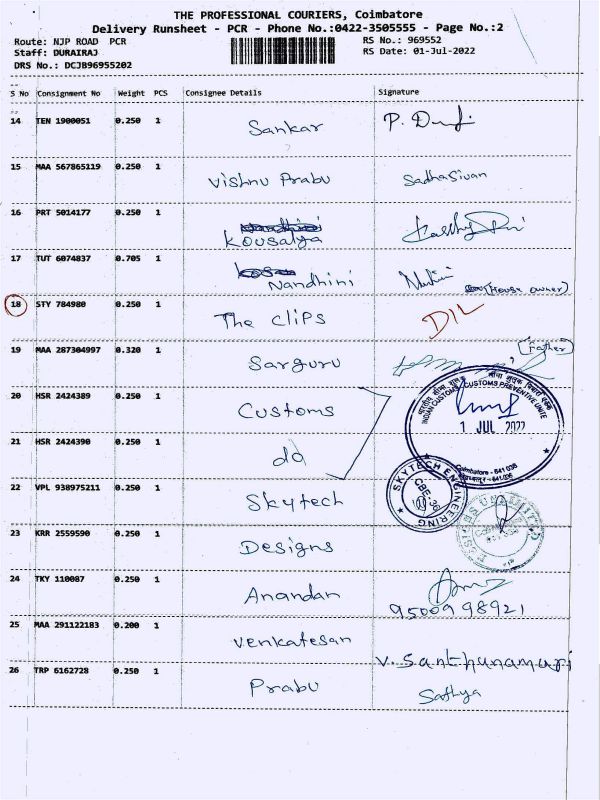 THE PROFESSIONAL COURIERS, Coimbatore
Delivery Runsheet - PCR - Phone No.:0422-3505555 - Page No.:2
Route: NJP ROAD PCR RS No.: 969552
Staff: DURAIRAJ RS Date: 01-Jul-2022
DRS No.: DCJB96955202
S No Consignment No Weight PCS Consignee Details Signature
14 TEN 1900051 0.250 1 Sankar
15 MAA 567865119 0.250 1 Vishnu Prabu Sadhasivan
16 PRT 5014177 0.250 1 Kousalya
17 TUT 6074837 0.705 1 Nandhini (House owner)
18 STY 784980 0.250 1 The Clips DIL
(Father)
19 MAA 287304997 0.320 1 Sarguru
20 HSR 2424389 0.250 1 Customs
INDIAN CUSTOMS CUSTOMS PREVENTIVE UNIT
1 JUL 2022
Coimbatore - 641 035
21 HSR 2424390 0.250 1 do
22 VPL 938975211 0.250 1 Skytech
SKYTECH ENGINEERING
CBE-35
23 KRR 2559590 0.250 1 Designs
24 TKY 110087 0.250 1 Anandan
9500998921
25 MAA 291122183 0.200 1 Venkatesan
V. Santhanamari
26 TRP 6162728 0.250 1 Prabu Sathya